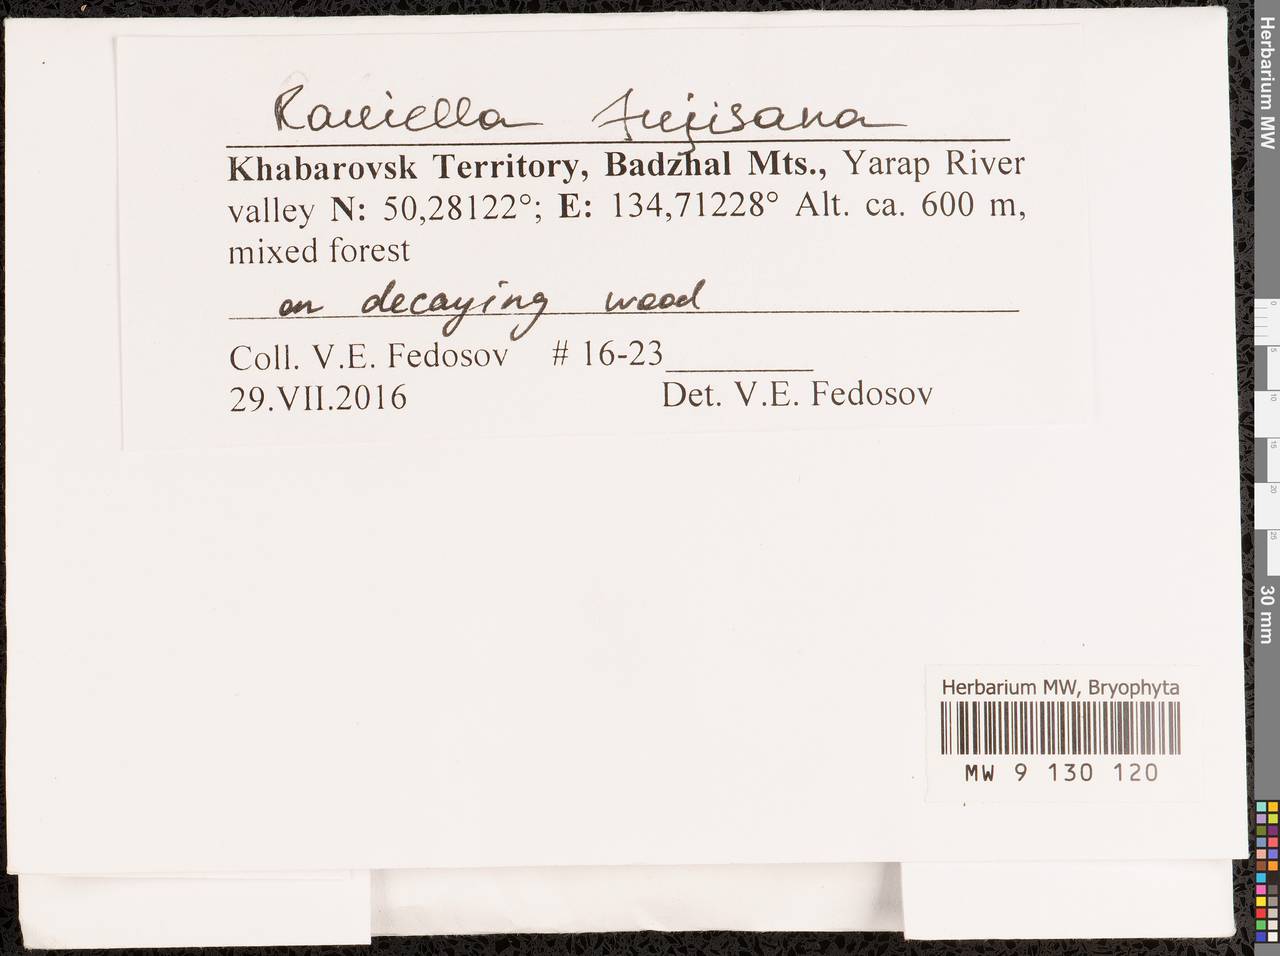 Rauiella fujisana
Khabarovsk Territory, Badzhal Mts., Yarap River
valley N: 50,28122°; E: 134,71228° Alt. ca. 600 m,
mixed forest
on decaying wood
Coll. V.E. Fedosov # 16-23
29.VII.2016 Det. V.E. Fedosov
Herbarium MW, Bryophyta
MW 9 130 120
Herbarium MW
0
5
10
15
20
25
30 mm